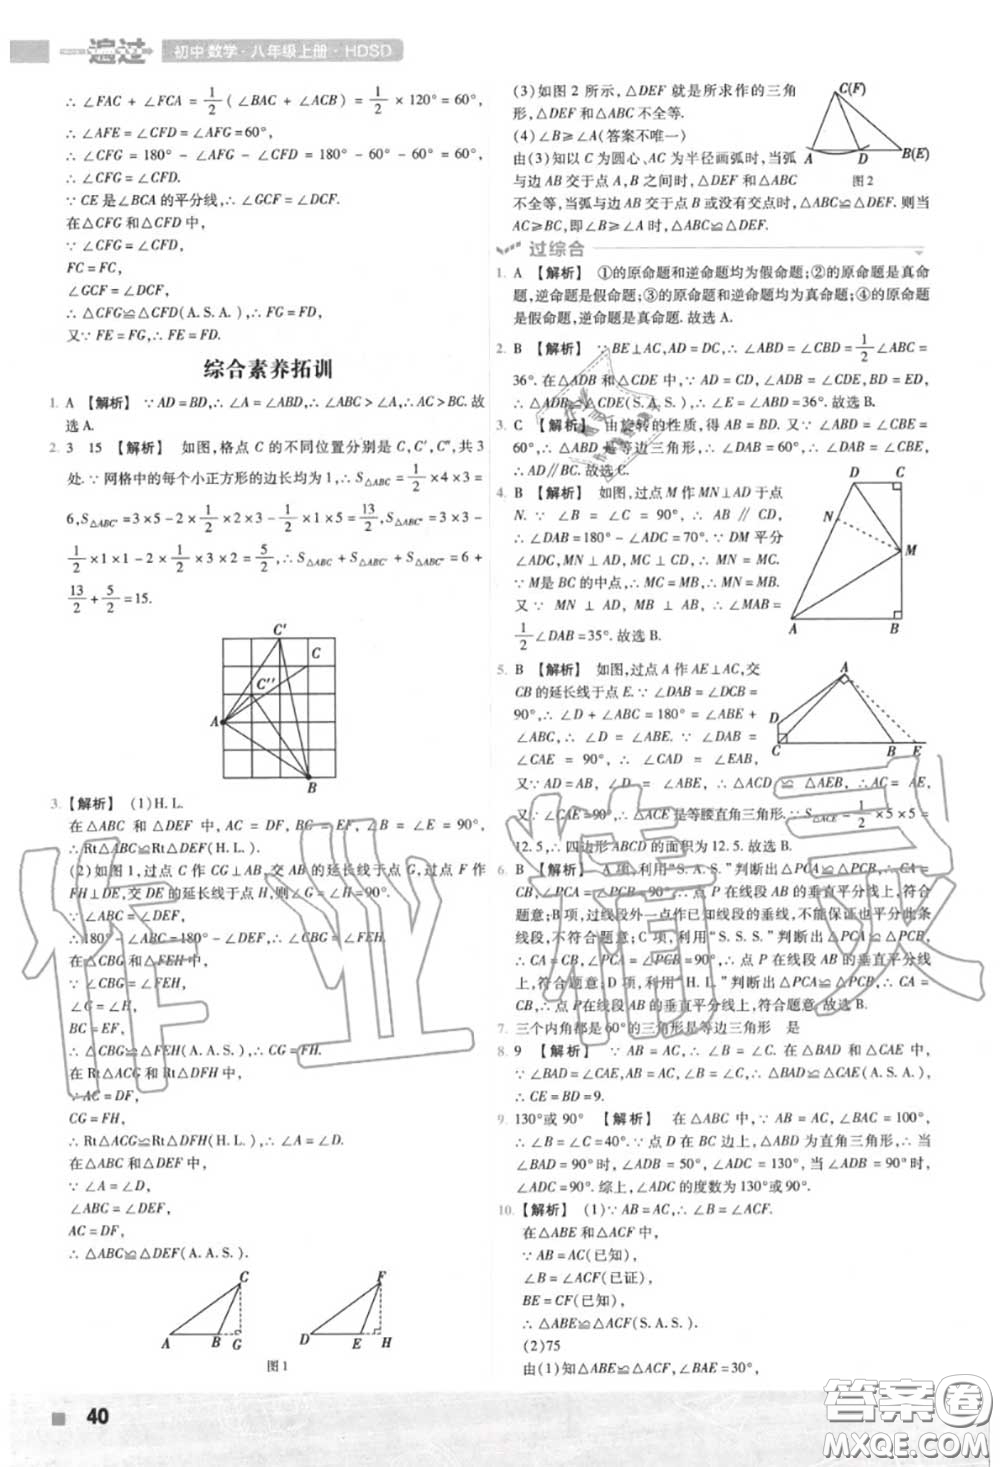 一遍过 初中数学·八年级上册·HDSD
∴ ∠FAC + ∠FCA = 1/2 (∠BAC + ∠ACB) = 1/2 × 120° = 60°,
∴ ∠AFE = ∠CFD = ∠AFG = 60°,
∴ ∠CFG = 180° − ∠AFG − ∠CFD = 180° − 60° − 60° = 60°,
∴ ∠CFG = ∠CFD.
∵ CE 是∠BCA 的平分线,∴ ∠GCF = ∠DCF.
在△CFG 和△CFD 中,
∵ ∠CFG = ∠CFD,
FC = FC,
∠GCF = ∠DCF,
∴ △CFG≌△CFD(A.S.A.),∴ FG = FD,
又∵ FE = FG,∴ FE = FD.
综合素养拓训
1. A 【解析】 ∵ AD = BD,∴ ∠A = ∠ABD,∴ ∠ABC > ∠A,∴ AC > BC. 故
选 A.
2. 3 15 【解析】 如图,格点 C 的不同位置分别是 C,C′,C″,共 3
处. ∵ 网格中的每个小正方形的边长均为 1,∴ S△ABC = 1/2 × 4 × 3 =
6,S△ABC′ = 3 × 5 − 2 × 1/2 × 2 × 3 − 1/2 × 1 × 5 = 13/2,S△ABC″ = 3 × 3 −
1/2 × 1 × 1 − 2 × 1/2 × 3 × 2 = 5/2,∴ S△ABC + S△ABC′ + S△ABC″ = 6 +
13/2 + 5/2 = 15.
C′
C
C″
A
B
3. 【解析】 (1)H.L.
在△ABC 和△DEF 中,AC = DF,BC = EF,∠B = ∠E = 90°,
∴ Rt△ABC≌Rt△DEF(H.L.).
(2)如图 1,过点 C 作 CG⊥AB,交 AB 的延长线于点 G,过点 F 作
FH⊥DE,交 DE 的延长线于点 H,则∠G = ∠H = 90°.
∵ ∠ABC = ∠DEF,
∴ 180° − ∠ABC = 180° − ∠DEF,∴ ∠CBG = ∠FEH.
在△CBG 和△FEH 中,
∵ ∠CBG = ∠FEH,
∠G = ∠H,
BC = EF,
∴ △CBG≌△FEH(A.A.S.),∴ CG = FH.
在 Rt△ACG 和 Rt△DFH 中,
∵ AC = DF,
CG = FH,
∴ Rt△ACG≌Rt△DFH(H.L.),∴ ∠A = ∠D.
在△ABC 和△DEF 中,
∵ ∠A = ∠D,
∠ABC = ∠DEF,
AC = DF,
∴ △ABC≌△DEF(A.A.S.).
C
A B G
F
D E H
图 1
(3)如图 2 所示,△DEF 就是所求作的三角
形,△DEF 和△ABC 不全等.
(4)∠B≥∠A(答案不唯一)
由(3)知以 C 为圆心、AC 为半径画弧时,当弧
与边 AB 交于点 A、B 之间时,△DEF 和△ABC
不全等,当弧与边 AB 交于点 B 或没有交点时,△ABC≌△DEF. 则当
AC≥BC,即∠B≥∠A 时,△ABC≌△DEF.
C(F)
A D B(E)
图 2
过综合
1. A 【解析】 ①的原命题和逆命题均为假命题;②的原命题是真命
题,逆命题是假命题;③的原命题和逆命题均为真命题;④的原命题
是假命题,逆命题是真命题. 故选 A.
2. B 【解析】 ∵ BE⊥AC,AD = DC,∴ ∠ABD = ∠CBD = 1/2∠ABC =
36°. 在△ADB 和△CDE 中,∵ AD = CD,∠ADB = ∠CDE,BD = ED,
∴ △ADB≌△CDE(S.A.S.),∴ ∠E = ∠ABD = 36°. 故选 B.
3. C 【解析】 由旋转的性质,得 AB = BD. 又∵ ∠ABD = ∠CBE =
60°,∴ △ABD 是等边三角形,∴ ∠ADB = 60°,∴ ∠ADB = ∠CBE,
∴ AD∥BC. 故选 C.
4. B 【解析】 如图,过点 M 作 MN⊥AD 于点
N. ∵ ∠B = ∠C = 90°,∴ AB∥CD,
∴ ∠DAB = 180° − ∠ADC = 70°. ∵ DM 平分
∠ADC,MN⊥AD,MC⊥CD,∴ MN = MC.
∵ M 是 BC 的中点,∴ MC = MB,∴ MN = MB.
又∵ MN⊥AD,MB⊥AB,∴ ∠MAB =
1/2∠DAB = 35°. 故选 B.
D C
N
M
A B
5. B 【解析】 如图,过点 A 作 AE⊥AC,交
CB 的延长线于点 E. ∵ ∠DAB = ∠DCB =
90°,∴ ∠D + ∠ABC = 180° = ∠ABE +
∠ABC,∴ ∠D = ∠ABE. ∵ ∠DAB =
∠CAE = 90°,∴ ∠CAD = ∠EAB.
又∵ AD = AB,∴ △ACD≌△AEB,∴ AC = AE,
又∵ ∠CAE = 90°,∴ △ACE 是等腰直角三角形,∴ S△ACE = 1/2 × 5 × 5 =
12.5,∴ 四边形 ABCD 的面积为 12.5. 故选 B.
A
D
C B E
6. B 【解析】 A 项,利用“S.A.S.”判断出△PCA≌△PCB,∴ CA =
CB,∠PCA = ∠PCB = 90°,∴ 点 P 在线段 AB 的垂直平分线上,符合
题意;B 项,过线段外一点作已知线段的垂线,不能保证也平分此条
线段,不符合题意;C 项,利用“S.S.S.”判断出△PCA≌△PCB,
∴ CA = CB,∠PCA = ∠PCB = 90°,∴ 点 P 在线段 AB 的垂直平分线
上,符合题意;D 项,利用“H.L.”判断出△PCA≌△PCB,∴ CA =
CB,∴ 点 P 在线段 AB 的垂直平分线上,符合题意. 故选 B.
7. 三个内角都是 60°的三角形是等边三角形 是
8. 9 【解析】 ∵ AB = AC,∴ ∠B = ∠C. 在△BAD 和△CAE 中,
∵ ∠BAD = ∠CAE,AB = AC,∠B = ∠C,∴ △BAD≌△CAE(A.S.A.),
∴ CE = BD = 9.
9. 130°或 90° 【解析】 在△ABC 中,∵ AB = AC,∠BAC = 100°,
∴ ∠B = ∠C = 40°. ∵ 点 D 在 BC 边上,△ABD 为直角三角形,∴ 当
∠BAD = 90°时,∠ADB = 50°,∴ ∠ADC = 130°;当∠ADB = 90°时,
∠ADC = 90°. 综上,∠ADC 的度数为 130°或 90°.
10. 【解析】 (1)∵ AB = AC,∴ ∠B = ∠ACF.
在△ABE 和△ACF 中,
∵ AB = AC(已知),
∠B = ∠ACF(已证),
BE = CF(已知),
∴ △ABE≌△ACF(S.A.S.).
(2)75
由(1)知△ABE≌△ACF,∠BAE = 30°,
40
作业精灵
答案圈
MXQE.COM